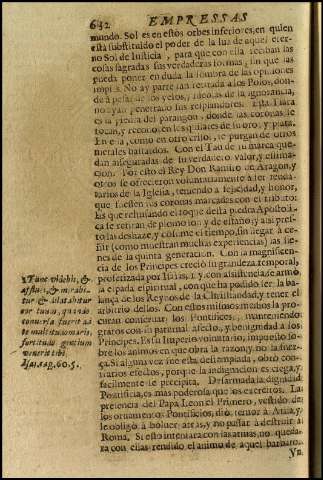 632 EMPRESSAS
mundo. Sol es en estos orbes inferiores, en quien
està substituido el poder de la luz de aquel eter-
no Sol de Iusticia, para que con ella reciban las
cosas sagradas sus verdaderas formas, sin que las
pueda poner en duda la sombra de las opiniones
impias. No ay parte tan retirada à los Polos, don-
de à pesar de los yelos, i nieblas de la ignorancia,
no ayan penetrado sus resplandores. Esta Tiara
es la piedra del parangon, donde las coronas se
tocan, y reconocen los quilates de su oro, y plata.
En ella, como en otro crisol, se purgan de otros
metales bastardos. Con el Tau de su marca que-
dan aseguradas de su verdadero valor, y estima-
cion. Por esto el Rey Don Ramiro de Aragon, y
otros se ofrecieron voluntariamente à ser feuda-
tarios de la Iglesia, teniendo à felicidad, y honor,
que fuessen sus coronas marcadas con el tributo.
Las que rehusando el toque desta piedra Apostoli-
ca se retiran de plomo son, y de estaño; y assi pres-
to las deshaze, y consume el tiempo, sin llegar à ce-
ñir (como muestran muchas experiencias) las sie-
nes de la quinta generacion. Con la magnificen-
cia de los Principes creciò su grandeza temporal,
profetizada por Isaias, 1 y con su asistencia se armò
la espada espiritual, con que ha podido ser la ba-
lança de los Reynos de la Christiandad, y tener el
arbitrio dellos. Con estos mismos medios la pro-
curan conservar los Pontifices, manteniendo
gratos con su paternal afecto, y benignidad à los
Principes. Es su Imperio voluntario, impuesto so-
bre los animos en que obra la razon, y no la fuer-
ça. Si alguna vez fue esta destemplada, obrò con-
trarios efectos, porque la indignacion es ciega, y
facilmente se precipita. Desarmada la dignidad
Pontificia, es mas poderosa que los exercitos. La
presencia del Papa Leon el Primero, vestido de
los ornamentos Pontificios, diò temor à Atila, y
le obligò à bolver atras, y no passar à destruir à
Roma. Si esto intentara con las armas, no queda-
ra con ellas rendido el animo de aquel barbaro.
Vn
1 Tunc videbis, &
afflues, & mirabi-
tur & dilatabitur
cor tuum, quando
conversa fuerit ad
te multitudo maris,
fortitudo gentium
venerit tibi.
Isai. cap. 60. 5.